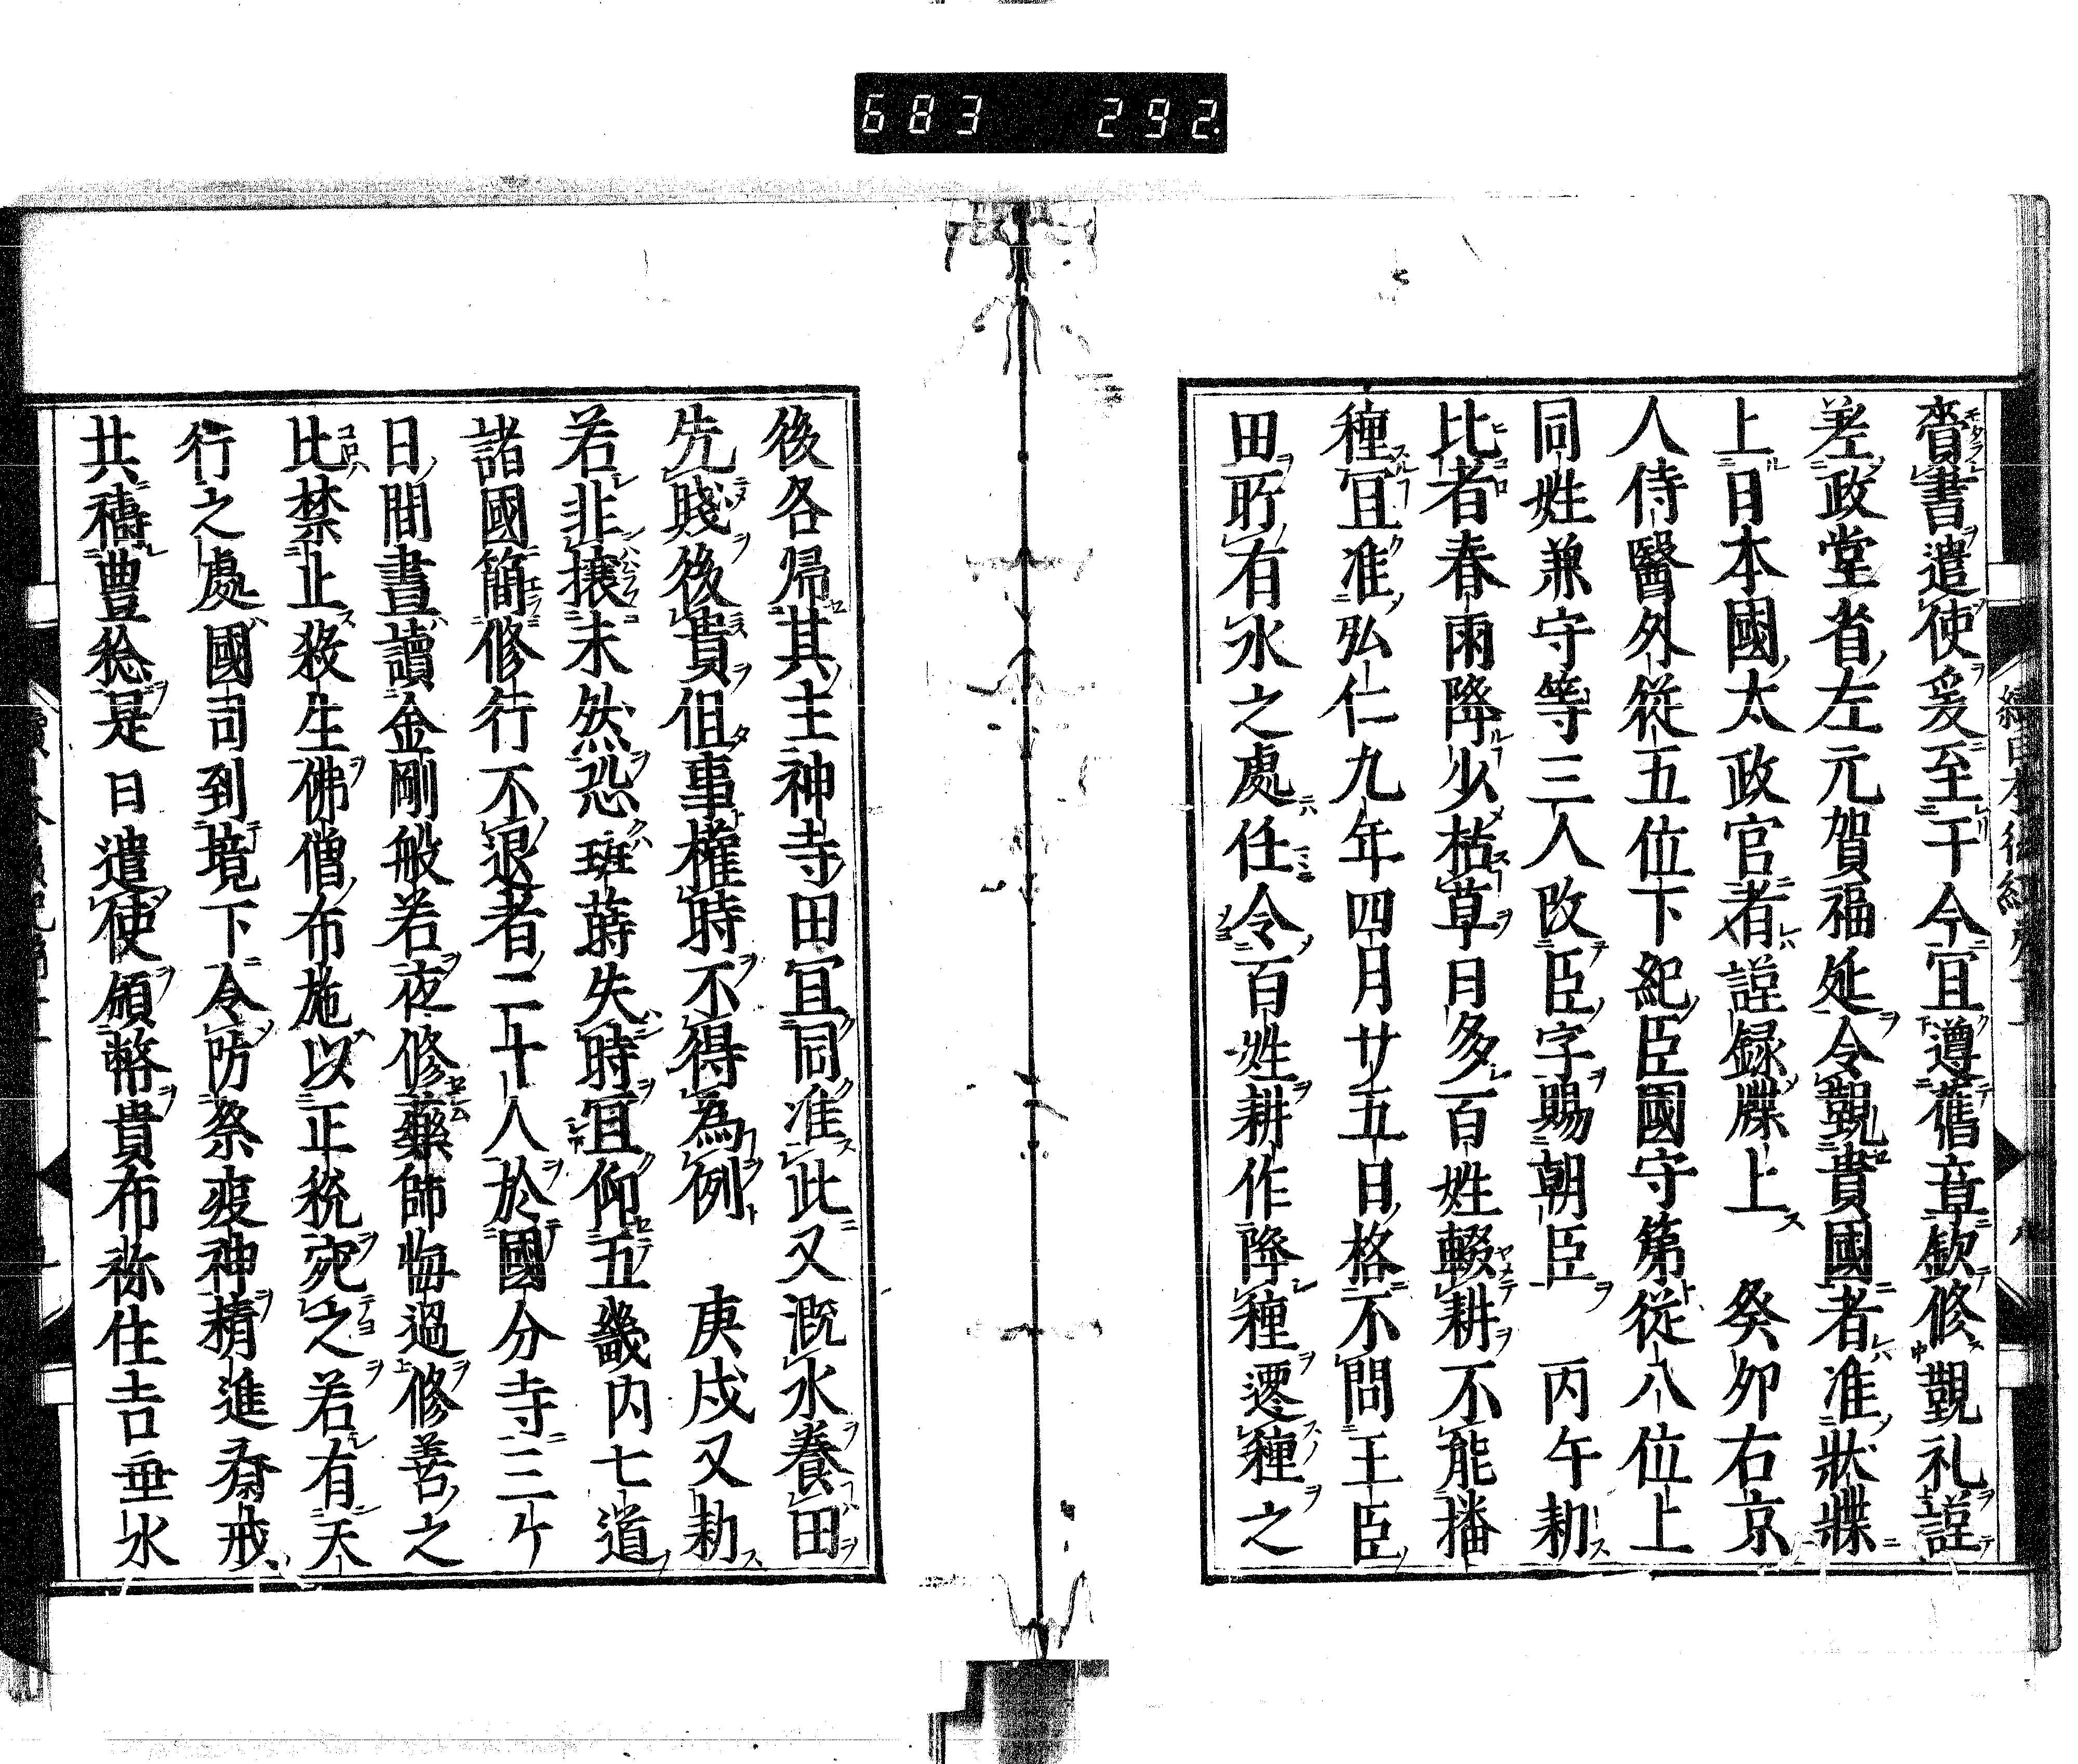 683 292.
齎書遣使爰至于今冝遵舊章欽修覲礼謹
差政堂省左元賀福延令覲貴國者准狀牒
上日本國太政官者謹録牒上 癸卯右京
人侍醫外從五位下紀臣國守第從八位上
同姓兼守等三人改臣字賜朝臣 丙午勑
比者春雨降少枯草日多百姓輟耕不能播
種冝准弘仁九年四月廿五日格不問王臣
田所有水之處任令百姓耕作降種遷種之
後各帰其主神寺田冝同准此又漑水養田
先賤後貴但事權時不得為例 庚戌又勑
若非攘未然恐班蒔失時冝仰五畿内七道
諸國簡修行不退者二十人於國分寺三ケ
日間晝讀金剛般若夜修藥師悔過修善之
比禁止殺生佛僧布施以正税宛之若有天
行之處國司到境下令防祭疫神精進齋戒
共禱豊稔是日遣使頒幣貴布祢住吉垂水